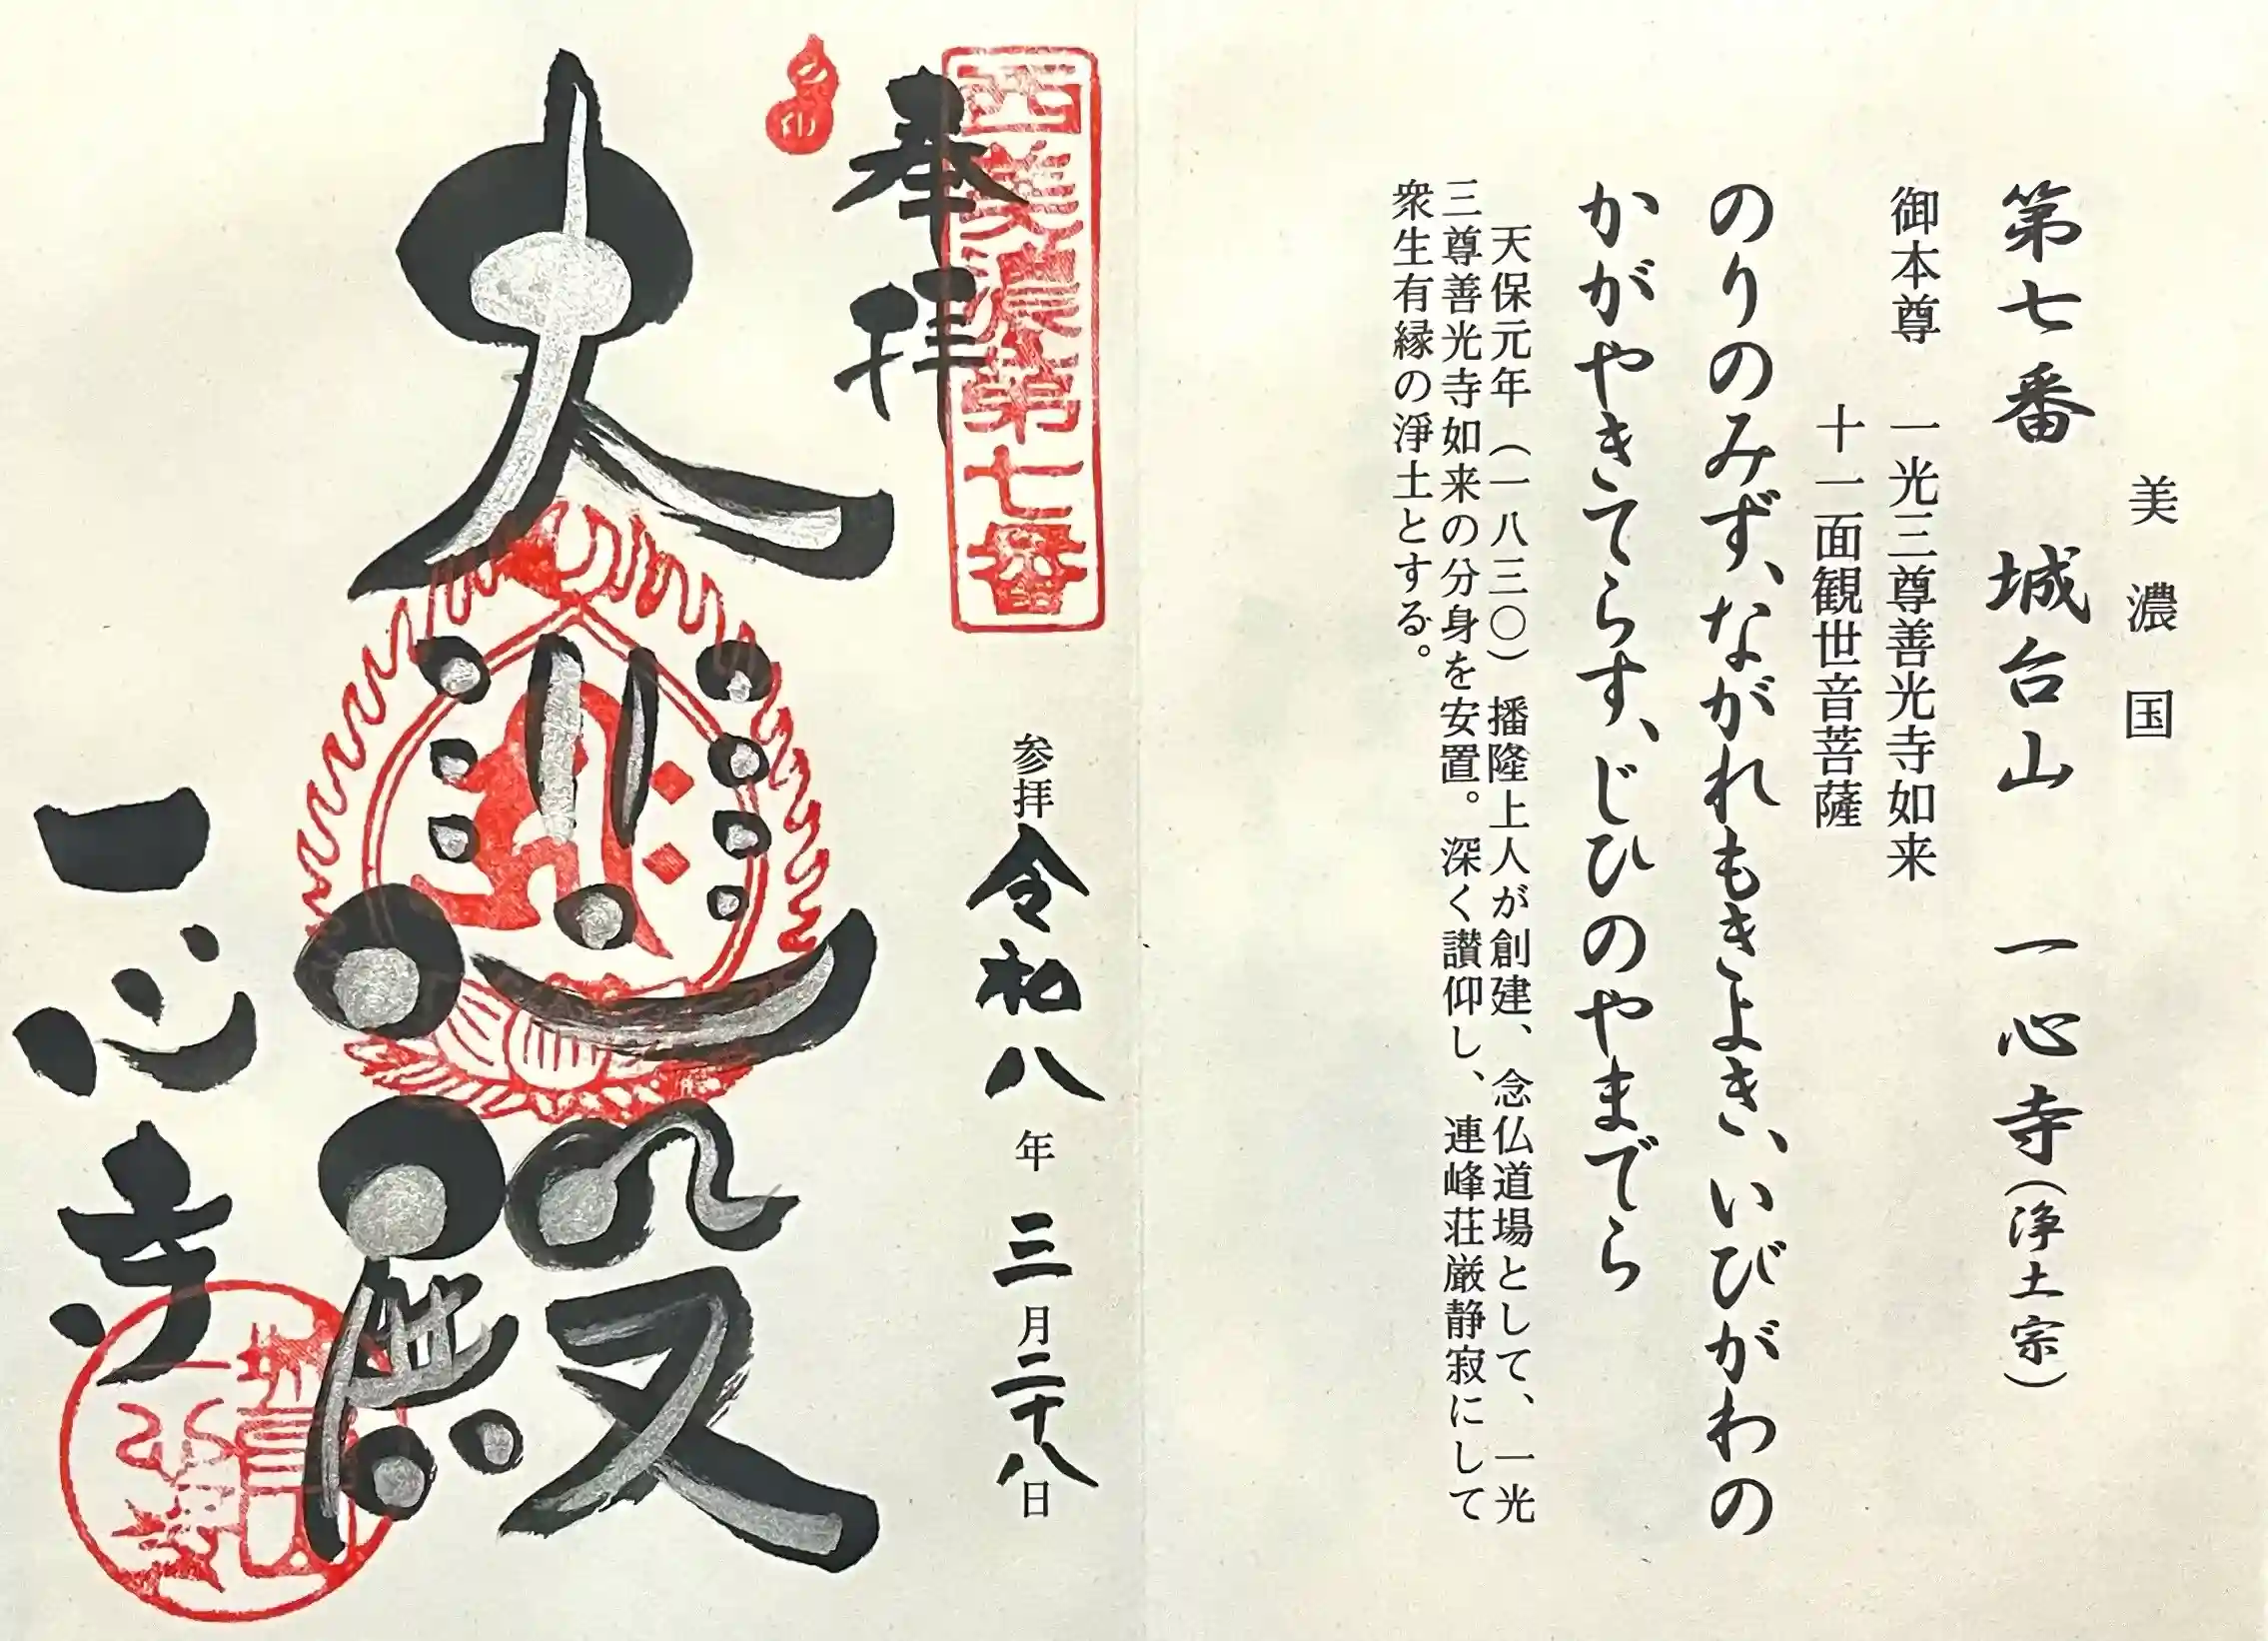 美濃国
第七番 城台山 一心寺(浄土宗)
御本尊 一光三尊善光寺如来
十一面観世音菩薩
のりのみず、ながれもきよき、いびがわの
かがやきてらす、じひのやまでら
天保元年(一八三〇)播隆上人が創建、念仏道場として、一光
三尊善光寺如来の分身を安置。深く讃仰し、連峰荘厳静寂にして
衆生有縁の淨土とする。
西美濃第七番
奉拝
参拝 令和八年三月二十八日
大悲殿
一心寺